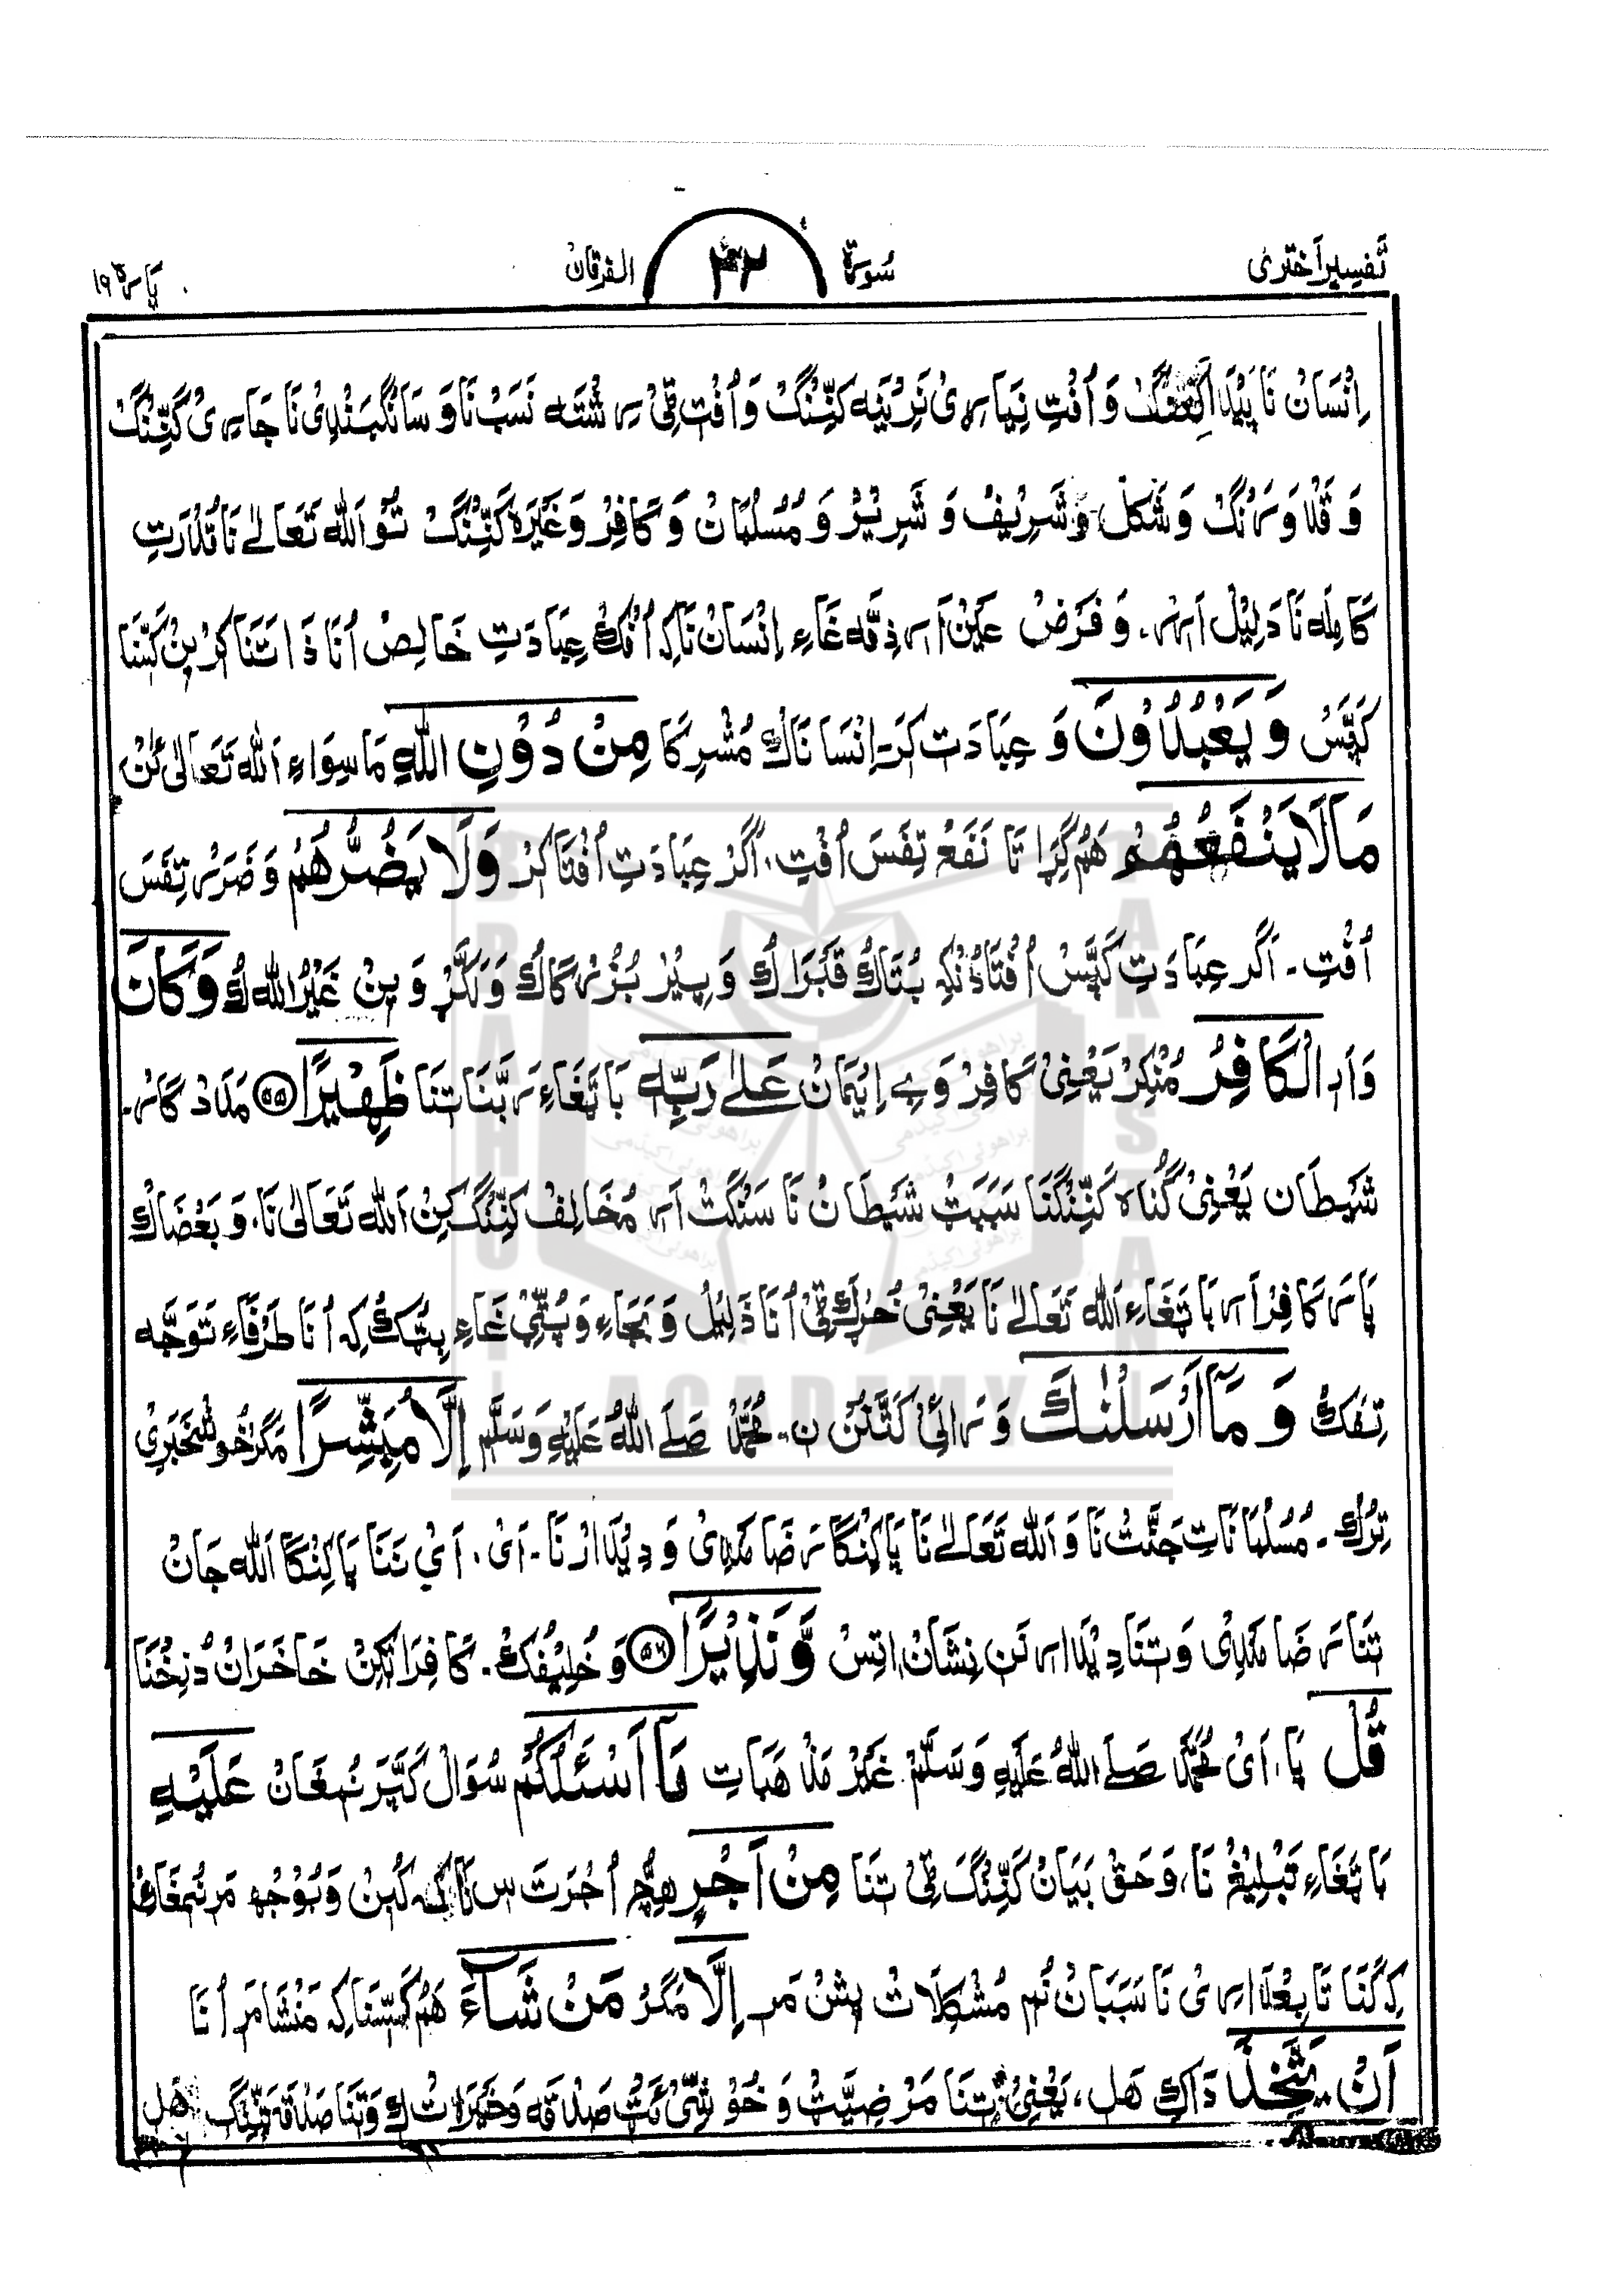 تَفسِیرِ اَختَری سُورَة ۴۲ الفرقان پاره ۱۹
اِنْسَانْ نَا پَیْدَا وَ اُفْتِ نِیَاری نَرِیْنَه کَنِّنْگْ وَ اُفْتِ ٹِیْ رِشْتَه نَسَبْ نَا وَ سَانْگْبَنْدِیْ نَا جَارِی کَنِّنْگْ
وَ قَدْ وَ رَنْگْ وَ شَکل وَ شَرِیْفْ وَ شَرِیْرْ وَ مُسُلمَانْ وَ کَافِرْ وَغَیْرَہْ کَنِّنْگْ تُو اَللّٰه تَعَالےٰ نَا قُدْرَتِ
کَامِلَه نَا دَلِیْل اَرِیْر۔ وَ فَرَضْ عَیْن اَرِ ذِمَّه غَاءِ اِنْسَانْ نَا کِ اُنْکْ عِبَادَتِ خَالِصْ اُنَا ذَاتَنَا کَرْ بِنْ کَسَّنَا
کَپَّسْ وَیَعْبُدُوْنَ وَ عِبَادَت کَرَ اِنْسَانَاکْ مُشْرِکَا مِنْ دُوْنِ اللّٰهِ مَاسِوَاءِ اَللّٰه تَعَالیٰ ئَنْ
مَالَا یَنْفَعُهُمْ هَمْ گِرَا تَا نَفَعْ تِفَسَ اُفْتِ۔ اَگَرْ عِبَادَتِ اُفْتَا کَرْ وَلَا یَضُرُّهُمْ وَ ضَرَرْ تِفَسَ
اُفْتِ۔ اَگَر عِبَادَتِ کَپَّسْ اُفْتَا دُنْکِه بُتَاکْ قَبْرَاکْ وَ پِیْر بُزُرْگَاکْ وَ نَکَّرْ وَ بِنْ غَیْرُ اللّٰه کْ وَکَانَ
وَ اَرِ الْکَافِرُ مُنْکِرْ یَعْنِیْ کَافِرْ وَ بے اِیْمَانْ عَلٰے رَبِّهٖ بَا تَغَاءِ رَبَّنَا تَنَا ظَهِیْرًا ۵۵ مَدَدْ گَارْ۔
شَیْطَان یَعْنِیْ گُنَاہ کَنِّنْگَنَا سَبَبَتْ شَیْطَانْ نَا سَنْگَتْ اَرِ مُخَالِفْ کَنِّنْگْ کِنْ اَللّٰه تَعَالیٰ نَا۔ وَ بَعْضَاکْ
پَارَ کَافِرْ اَرِ بَا تَغَاءِ اَللّٰه تَعَالےٰ نَا یَعْنِیْ خُرْکْ ٹِیْ اُنَا ذَلِیْلْ وَ بَجَاءِ وَ پُٹِّیْ غَاءِ بِٹِّکْ کِه اُنَا طَرْفَاءِ تَوَجَّه
تِفَکْ وَمَآ اَرْسَلْنٰكَ وَ رَائی کَتَّنُنْ نِ۔ مُحَمَّدْ صَلَے اللّٰهُ عَلَیْهِ وَسَلَّم اِلَّا مُبَشِّرًا مَگر خُوشْخَبَرِیْ
تِرُکْ۔ مُسُلْمَانَاتِ جَنَّتْ نَا وَ اَللّٰه تَعَالےٰ نَا پَاکِنْگَا رَضَا مَنْدِیْ وَ دِیْدَارْ نَا۔ اَیْ۔ اَیْ تَنَا پَاکِنْگَا اَللّٰه جَانْ
تَنَا رَضَا مَنْدِیْ وَ تَنَا دِیْدَارْ نَنِ نِشَانْ اِتِسْ وَّنَذِیْرًا ۵۶ وَ خُلِیْفَکْ۔ کَافِرَاتِکِنْ خَاخَرَانْ دُنِخْنَا
قُلْ پَا۔ اَیْ مُحَمَّدْ صَلَے اللّٰهُ عَلَیْهِ وَسَلَّمْ غَیْرْ مَذْهَبَاتِ مَا اَسْئَلُکُمْ سُوَالْ کَپَّرَ نُمْغَانْ عَلَیْهِ
بَا تَغَاءِ تَبْلِیْغْ نَا، وَ حَقْ بَیَانْ کَنِّنْگَ ٹِیْ تَنَا مِنْ اَجْرٍ هِچّ اُجْرَتَ س نَا کِه کُبِنْ وَ بُوْجْه مَر نُمْغَاءِ
کِ کَنَا تَابِعْدَارِیْ نَا سَبَبَانْ نُم مُشْکِلَاتْ ٹِیْ شَنْ مَر اِلَّا مَگَرْ مَنْ شَآءَ هَمْ کَسَّنَا کِه مَنْشَا مَر اُنَا
اَنْ یَّتَّخِذَ دَاکِ هَل، یَعْنِیْ تَنَا مَرْضِیَّتْ وَ خُوشِیْ ئَتْ صَدْقَه وَ خَیْرَاتْ کِ وَ تَنَا صَدْقَه تِنِنْگ هَل